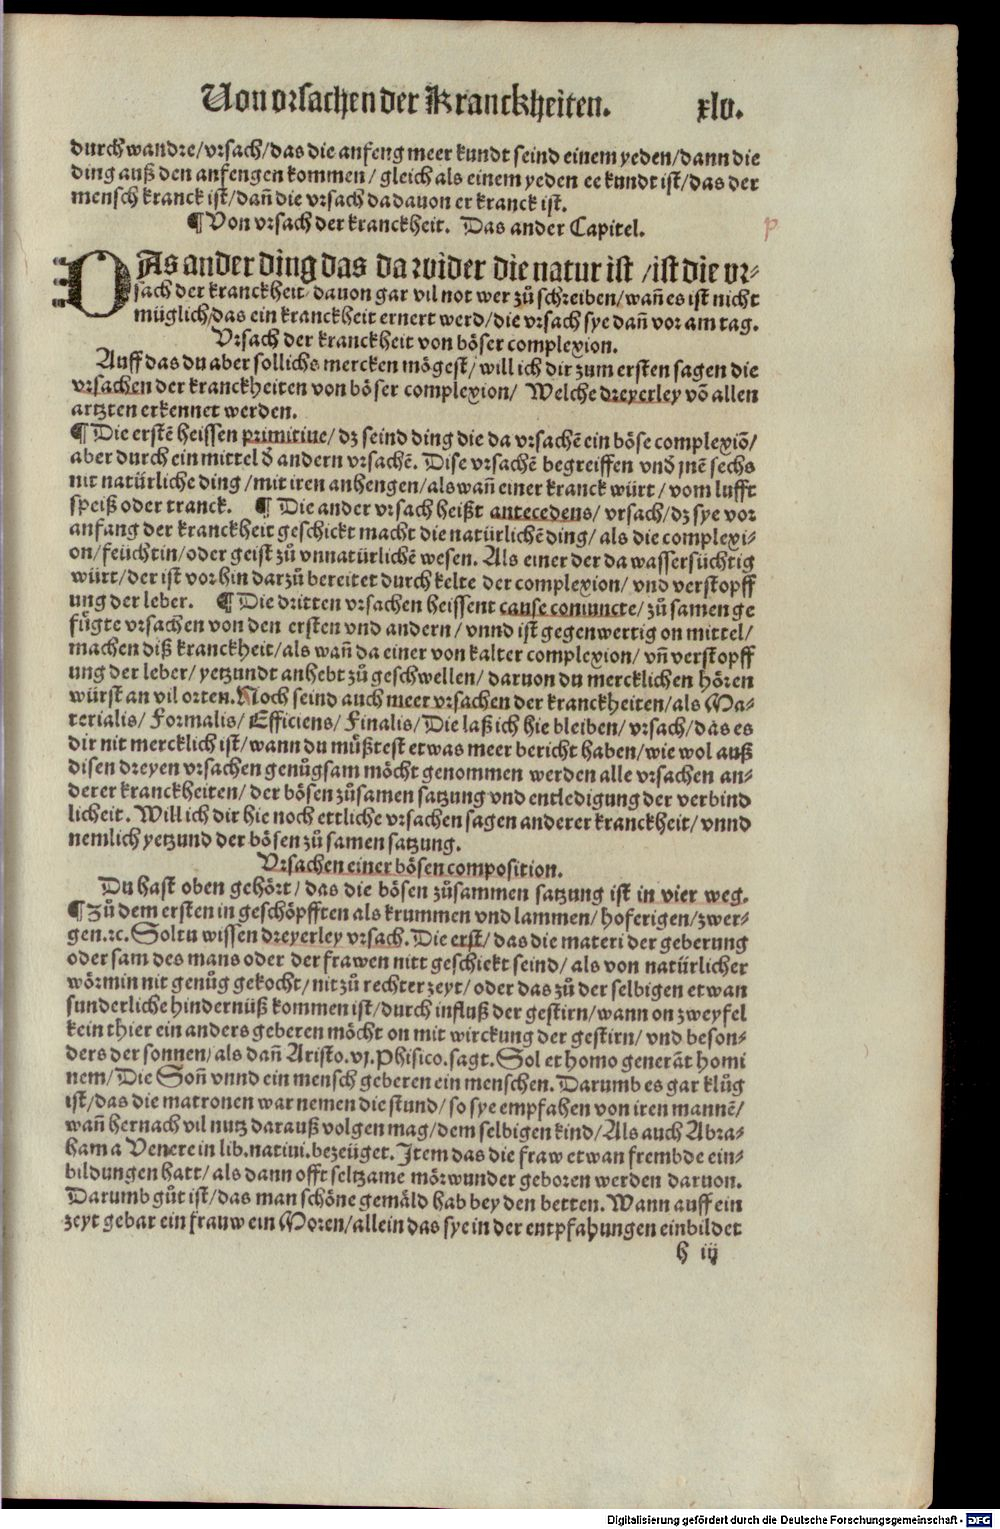 Von vrsachen der Kranckheiten. xlv.
durchwandre/vrsach/das die anfeng meer kundt seind einem yeden/dann die
ding auß den anfengen kommen/ gleich als einem yeden ee kundt ist/das der
mensch kranck ist/dañ die vrsach dadauon er kranck ist.
¶Von vrsach der kranckheit. Das ander Capitel.
p
DAs ander ding das da wider die natur ist /ist die vr⸗
sach der kranckheit/dauon gar vil not wer zů schreiben/wañ es ist nicht
müglich/das ein kranckheit ernert werd/die vrsach sye dañ vor am tag.
Vrsach der kranckheit von böser complexion.
Auff das du aber sollichs mercken mögest/will ich dir zum ersten sagen die
vrsachen der kranckheiten von böser complexion/ Welche dreyerley võ allen
artzten erkennet werden.
¶Die erstẽ heissen primitiue/dz seind ding die da vrsachẽ ein böse complexiõ/
aber durch ein mittel d̄ andern vrsachẽ. Dise vrsachẽ begreiffen vnd jnẽ sechs
nit natürliche ding/mit iren anhengen/als wañ einer kranck würt/vom lufft
speiß oder tranck. ¶ Die ander vrsach heißt antecedens/vrsach/dz sye vor
anfang der kranckheit geschickt macht die natürlichẽ ding/ als die complexi⸗
on/feüchtin/oder geist zů vnnatürlichẽ wesen. Als einer der da wassersüchtig
würt/der ist vorhin darzů bereitet durch kelte der complexion/ vnd verstopff
ung der leber. ¶Die dritten vrsachen heissent cause coniuncte/zů samen ge
fügte vrsachen von den ersten vnd andern/vnnd ist gegenwertig on mittel/
machen diß kranckheit/als wañ da einer von kalter complexion/ vñ verstopff
ung der leber/yetzundt anhebt zů geschwellen/daruon du mercklichen hören
würst an vil orten. Noch seind auch meer vrsachen der kranckheiten/als Ma⸗
terialis/ Formalis/ Efficiens/ Finalis/Die laß ich hie bleiben/vrsach/das es
dir nit mercklich ist/wann du müßtest etwas meer bericht haben/wie wol auß
disen dreyen vrsachen genůgsam möcht genommen werden alle vrsachen an⸗
derer kranckheiten/ der bösen zůsamen satzung vnd entledigung der verbind
licheit. Will ich dir hie noch ettliche vrsachen sagen anderer kranckheit/vnnd
nemlich yetzund der bösen zů samen satzung.
Vrsachen einer bösen composition.
Du hast oben gehört/das die bösen zůsammen satzung ist in vier weg.
¶Zů dem ersten in geschöpfften als krummen vnd lammen/hoferigen/zwer⸗
gen.ꝛc. Soltu wissen dreyerley vrsach. Die erst/das die materi der geberung
oder sam des mans oder der frawen nitt geschickt seind/ als von natürlicher
wörmin nit genůg gekocht/nit zů rechter zeyt/oder das zů der selbigen etwan
sunderliche hindernüß kommen ist/durch influß der gestirn/wann on zweyfel
kein thier ein anders geberen möcht on mit wirckung der gestirn/vnd beson⸗
ders der sonnen/als dañ Aristo.vj.Phisico.sagt. Sol et homo generãt homi
nem/Die Soñ vnnd ein mensch geberen ein menschen. Darumb es gar klůg
ist/das die matronen war nemen die stund/so sye empfahen von iren mannẽ/
wañ hernach vil nutz darauß volgen mag/dem selbigen kind/Als auch Abra⸗
ham a Venere in lib.natiui.bezeüget. Item das die fraw etwan frembde ein⸗
bildungen hatt/als dann offt seltzame mörwunder geboren werden daruon.
Darumb gůt ist/das man schöne gemäld hab bey den betten. Wann auff ein
zeyt gebar ein frauw ein Moren/allein das sye in der entpfahungen einbildet
h iij
Digitalisierung gefördert durch die Deutsche Forschungsgemeinschaft - DFG